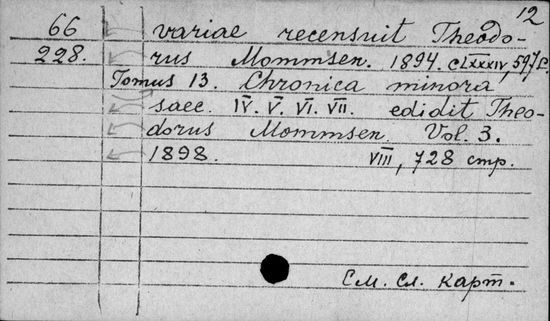 12
66 variae recensuit Theodo-
228. rus Mommsen. 1894. CLXXXIV, 597 с.
Tomus 13. Chronica minora
saec. IV. V. VI. VII. edidit Theo-
dorus Mommsen. Vol. 3.
1898. VIII, 728 стр.
См. сл. карт.